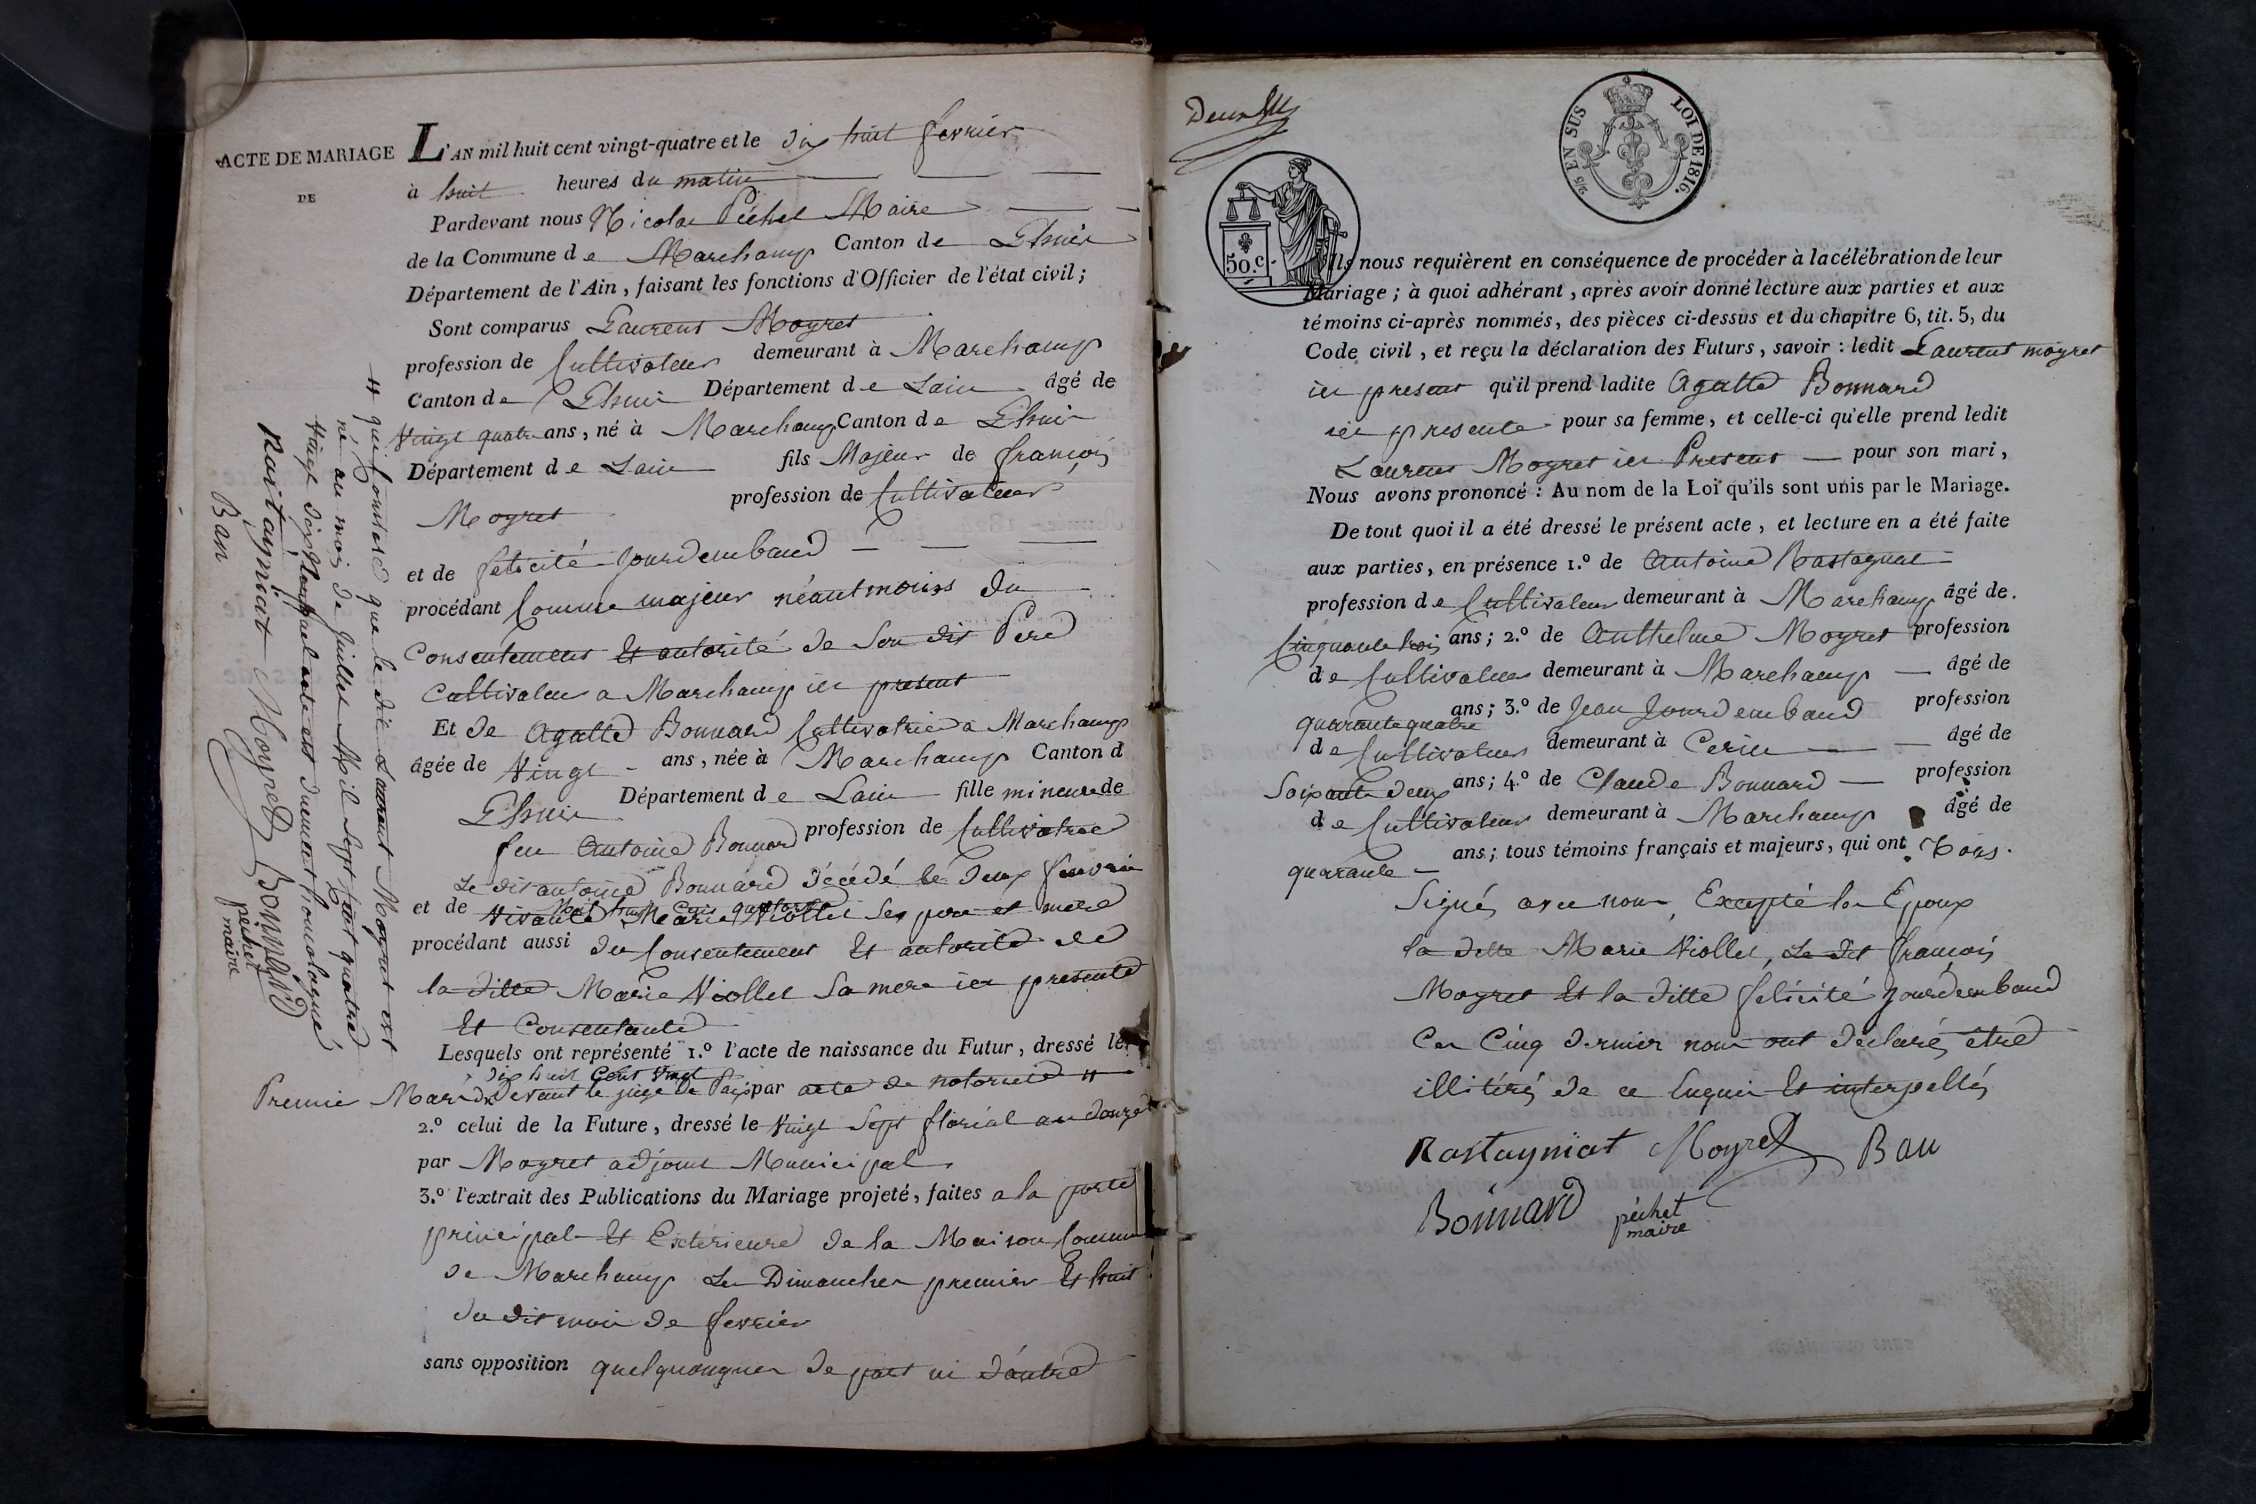 ACTE DE MARIAGE
DE
L'AN mil huit cent vingt-quatre et le dix huit fevrier
à huit heures du matin
Pardevant nous Nicolas Péchet Maire
de la Commune de Marchamp Canton de Lhuis
Département de l'Ain, faisant les fonctions d'Officier de l'état civil;
Sont comparus Laurent Moyret
profession de Cultivateur demeurant à Marchamp
Canton de Lhuis Département de Lain âgé de
Vingt quatre ans, né à Marchamp Canton de Lhuis
Département de Lain fils Majeur de françois
Moyret profession de Cultivateur
et de felicité Jourdembaud
procédant Comme majeur néantmoins du
Consentement Et autorité de Son dit Pere
Cultivateur a Marchamp ici present
Et de Agatte Bonnard Cultivatrice a Marchamp
âgée de Vingt ans, née à Marchamp Canton d
Lhuis Département de Lain fille mineure de
feu Antoine Bonnard profession de Cultivatrice
Le dit antoine Bonnard décédé le deux fevrier
Mil huit Cent quatorze
et de Vivante Marie Viollet Ses pere et mere
procédant aussi du Consentement Et autorité de
la ditte Marie Viollet Sa mere ici presente
Et Consentante
Lesquels ont représenté 1.º l'acte de naissance du Futur, dressé le
dix huit Cent vingt
Premier Mars devant le juge de Paix par acte de notorieté #
2.º celui de la Future, dressé le Vingt Sept floréal an douze
par Moyret adjoint Municipal
3.º l'extrait des Publications du Mariage projeté, faites a la porte
principal Et Exterieure de la Maison Commune
de Marchamp Les Dimanches premier Et huit
du dit mois de fevrier
sans opposition quelquonques de part ni d'autre
# qui Constate que le dit Laurent Moyret est
né au mois de Juillet Mil Sept
Rastagniat Moyret Bonnard péchet
maire
Ban
5o.c.
EN SUS LOI DE 1816.
Ils nous requièrent en conséquence de procéder à la célébration de leur
Mariage; à quoi adhérant, après avoir donné lecture aux parties et aux
témoins ci-après nommés, des pièces ci-dessus et du chapitre 6, tit. 5, du
Code civil, et reçu la déclaration des Futurs, savoir: ledit Laurent moyret
ici present qu'il prend ladite Agatte Bonnard
ici presente pour sa femme, et celle-ci qu'elle prend ledit
Laurent Moyret ici Present pour son mari,
Nous avons prononcé: Au nom de la Loi qu'ils sont unis par le Mariage.
De tout quoi il a été dressé le présent acte, et lecture en a été faite
aux parties, en présence 1.º de Antoine Rastagnat
profession de Cultivateur demeurant à Marchamp âgé de.
Cinquante trois ans; 2.º de Anthelme Moyret profession
de Cultivateur demeurant à Marchamp âgé de
quarante quatre ans; 3.º de Jean Jourdembaud profession
de Cultivateur demeurant à Cerin âgé de
Soixante deux ans; 4.º de Claude Bonnard profession
de Cultivateur demeurant à Marchamp âgé de
quarante ans; tous témoins français et majeurs, qui ont Tous
Signés avec nous, Excepté les Epoux
la ditte Marie Viollet, Le dit françois
Moyret Et la ditte felicité Jourdembaud
Ces Cinq dernier nous ont déclarés être
illitérés de ce Enquis Et interpellés
Rastagniat Moyret Ban
Bonnard péchet
maire